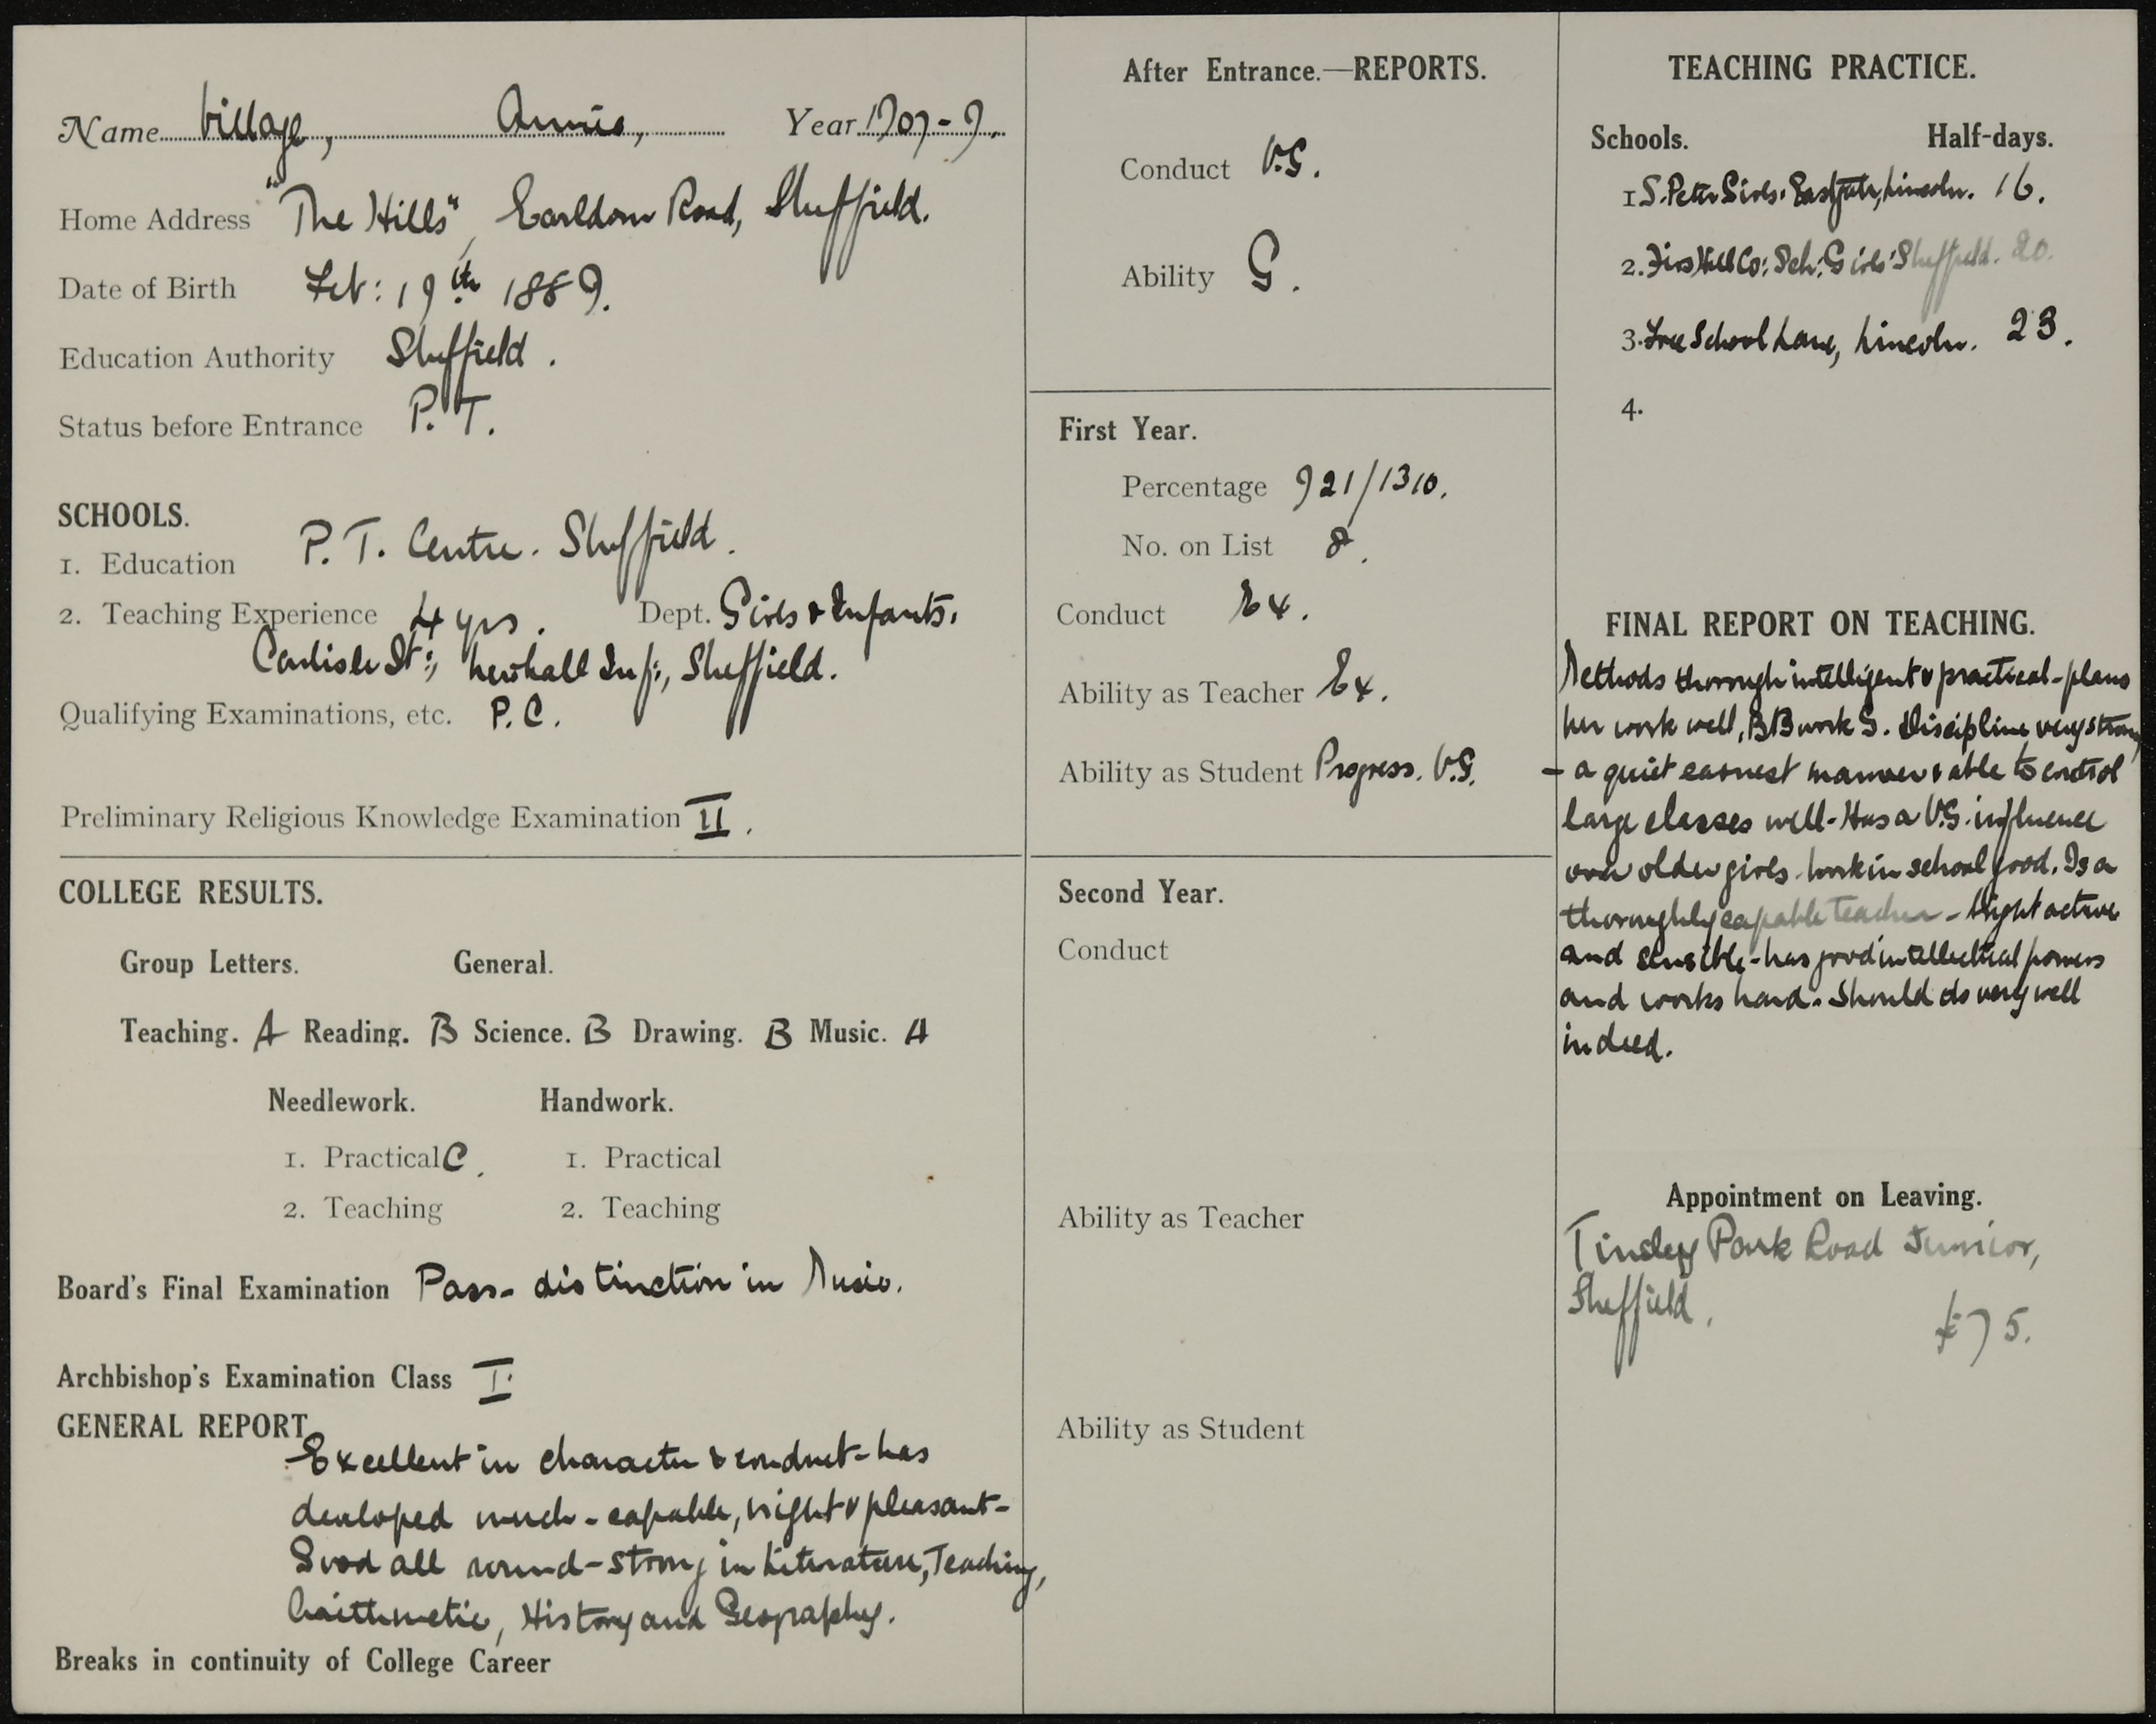 Name Village, Annie, Year 1907-9.
Home Address "The Hills", Earldom Road, Sheffield.
Date of Birth Feb: 19th 1889.
Education Authority Sheffield.
Status before Entrance P.T.
SCHOOLS.
1. Education P.T. Centre. Sheffield.
2. Teaching Experience 4 yrs. Dept. Girls & Infants.
Carlisle St:, Newhall Inf:, Sheffield.
Qualifying Examinations, etc. P.C.
Preliminary Religious Knowledge Examination II.
COLLEGE RESULTS.
Group Letters. General.
Teaching. A Reading. B Science. B Drawing. B Music. A
Needlework. Handwork.
1. Practical C. 1. Practical
2. Teaching 2. Teaching
Board's Final Examination Pass - distinction in Music.
Archbishop's Examination Class I.
GENERAL REPORT
Excellent in character & conduct - has
developed much - capable, bright & pleasant -
Good all round - strong in Literature, Teaching,
Arithmetic, History and Geography.
Breaks in continuity of College Career
After Entrance.—REPORTS.
Conduct V.G.
Ability G.
First Year.
Percentage 921/1310.
No. on List 8.
Conduct Ex.
Ability as Teacher Ex.
Ability as Student Progress. V.G.
Second Year.
Conduct
Ability as Teacher
Ability as Student
TEACHING PRACTICE.
Schools. Half-days.
1 S. Peter Girls. Eastgate, Lincoln. 16.
2. Firs Hill Co: Sch: Girls' Sheffield. 20.
3. Free School Lane, Lincoln. 23.
4.
FINAL REPORT ON TEACHING.
Methods thorough intelligent & practical - plans
her work well, BB work G. Discipline very strong
- a quiet earnest manner & able to control
large classes well - Has a V.G. influence
over older girls. Work in school good. Is a
thoroughly capable teacher - bright active
and sensible - has good intellectual powers
and works hard. Should do very well
indeed.
Appointment on Leaving.
Tinsley Park Road Junior,
Sheffield.
£75.